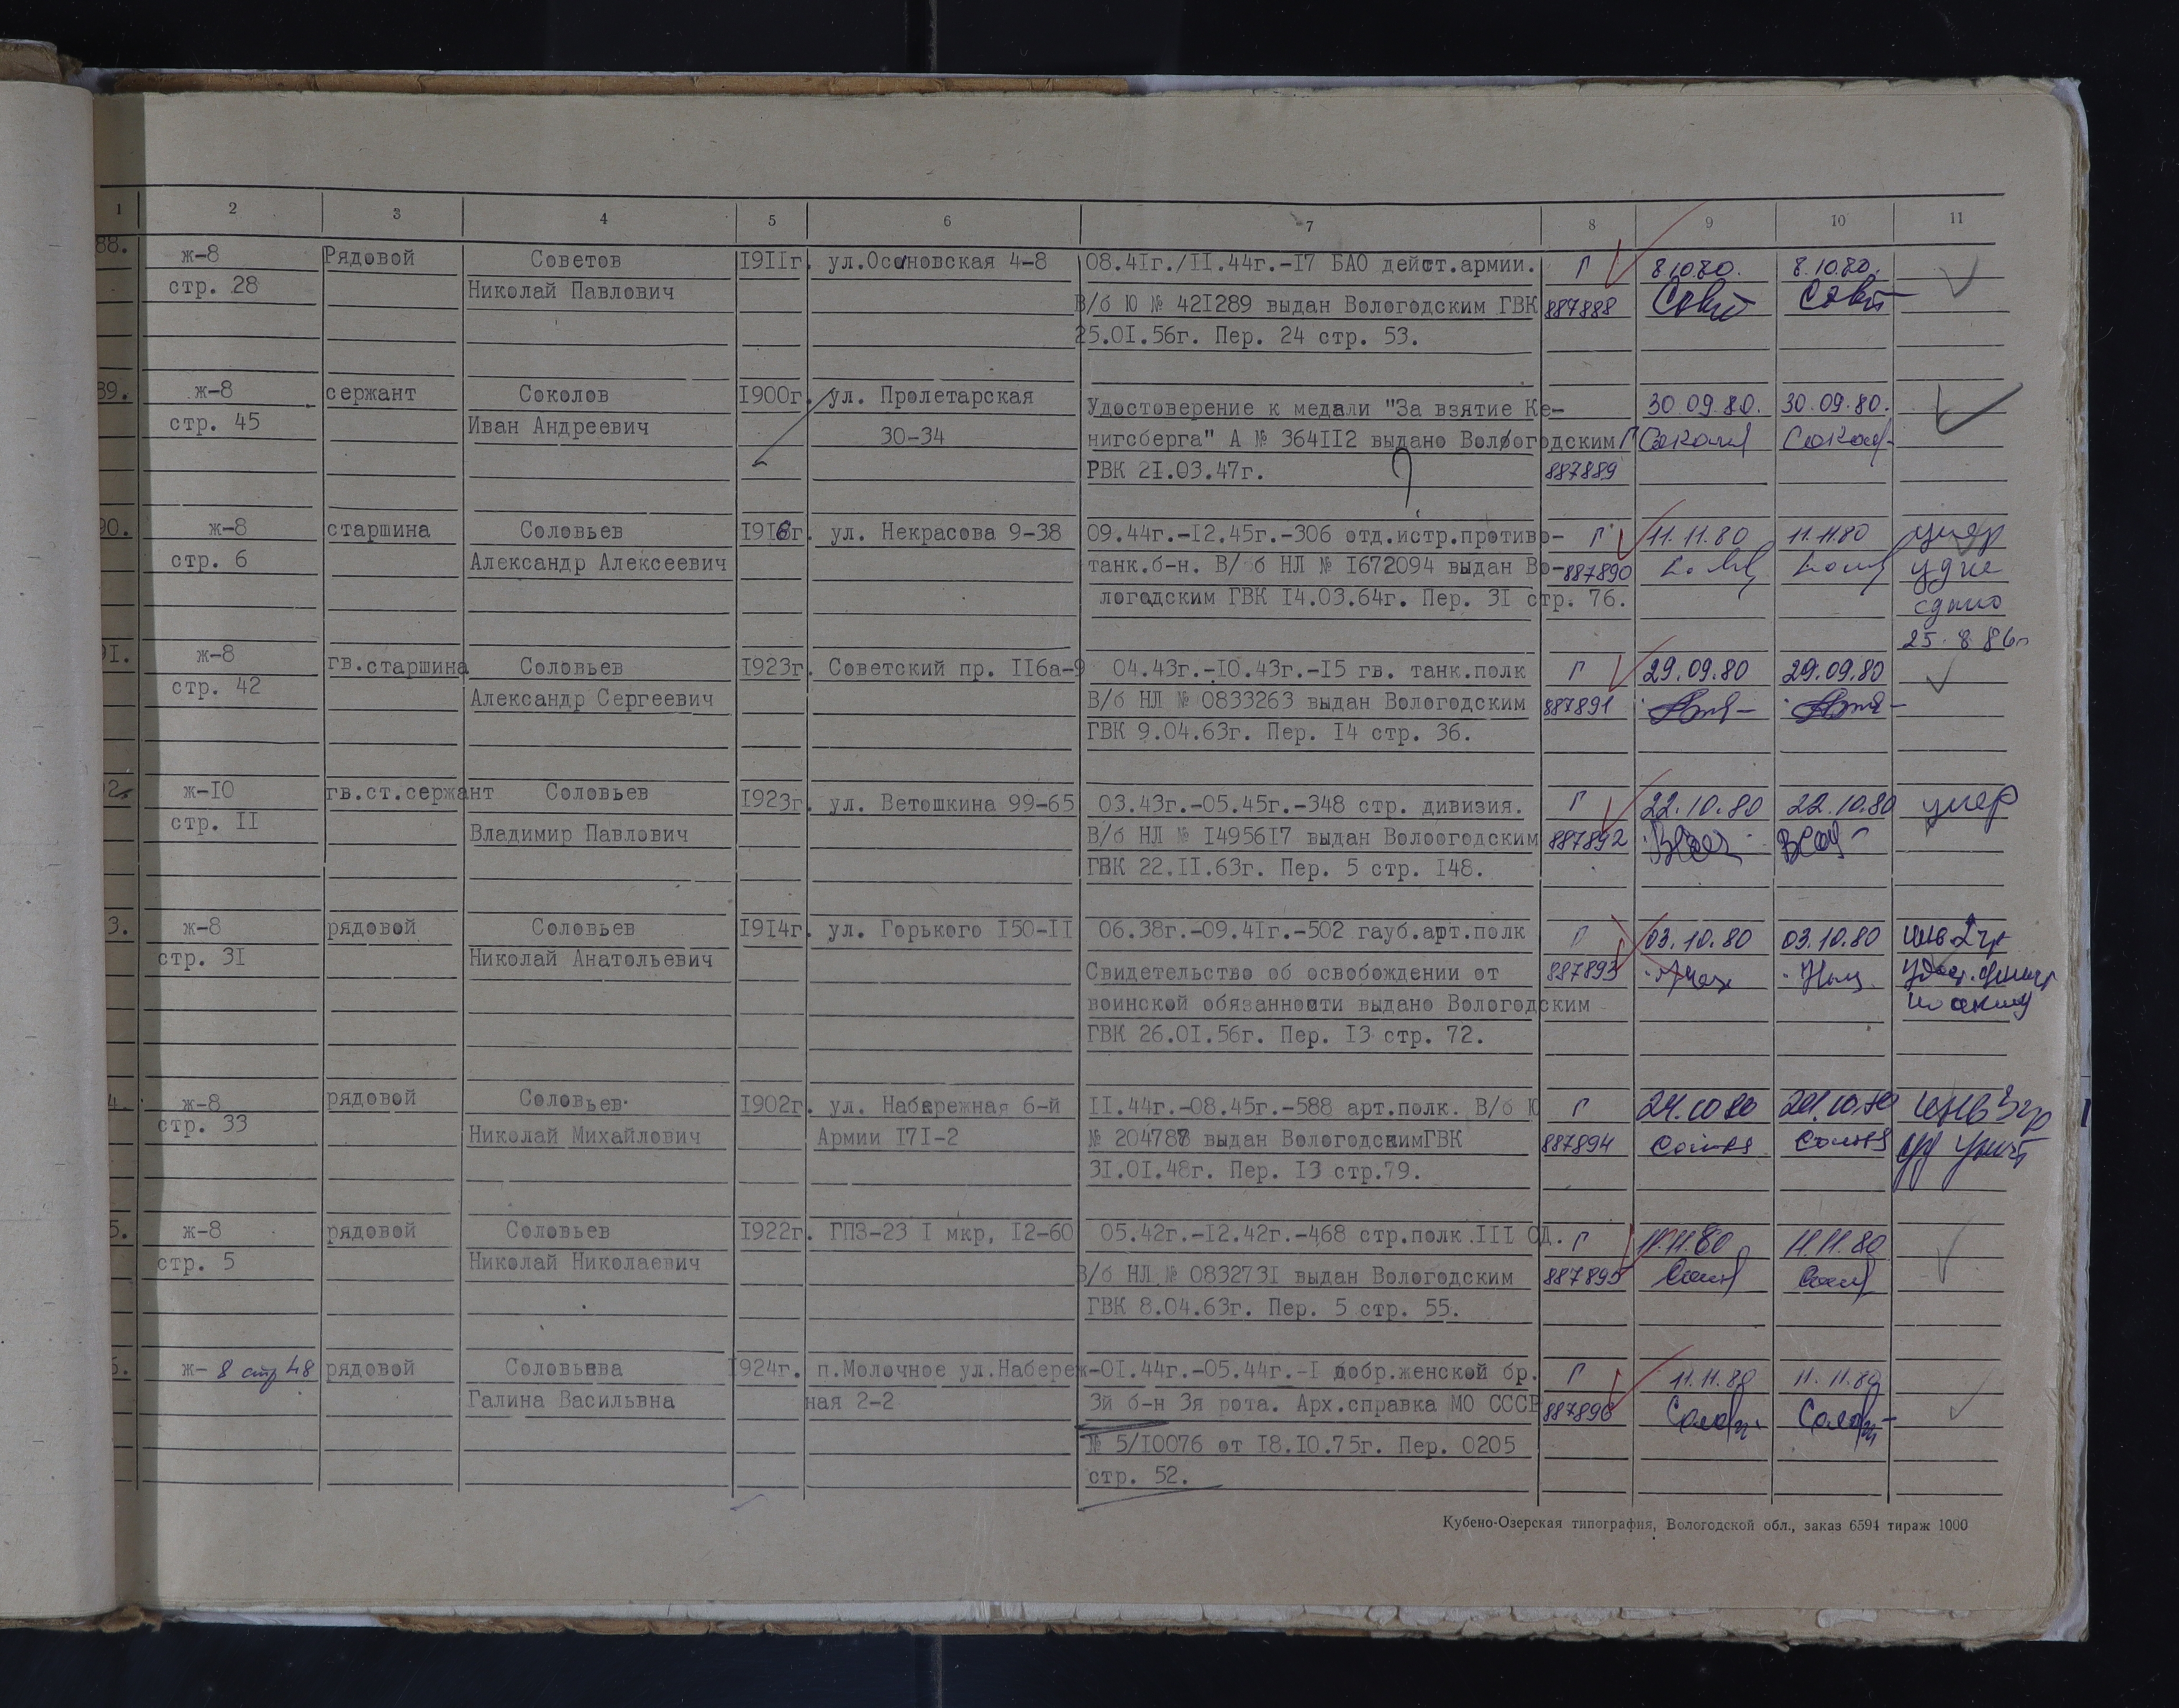 1 2 3 4 5 6 7 8 9 10 11
88. ж-8 Рядовой Советов 1911г. ул.Осановская 4-8 08.41г./11.44г.-17 БАО дейст.армии. Г 8.10.80. 8.10.80.
стр. 28 Николай Павлович В/б Ю № 421289 выдан Вологодским ГВК 887888
25.01.56г. Пер. 24 стр. 53.
89. ж-8 сержант Соколов 1900г. ул. Пролетарская Удостоверение к медали "За взятие Ке- 30.09.80. 30.09.80.
стр. 45 Иван Андреевич 30-34 нигсберга" А № 364112 выдано Вологодским Г
РВК 21.03.47г. 887889
90. ж-8 старшина Соловьев 1916г. ул. Некрасова 9-38 09.44г.-12.45г.-306 отд.истр.противо- Г 11.11.80 11.11.80 умер
стр. 6 Александр Алексеевич танк.б-н. В/б НЛ № 1672094 выдан Во- 887890 уд не
логодским ГВК 14.03.64г. Пер. 31 стр. 76. сдано
25.8.86г
91. ж-8 гв.старшина Соловьев 1923г. Советский пр. 116а-9 04.43г.-10.43г.-15 гв. танк.полк Г 29.09.80 29.09.80
стр. 42 Александр Сергеевич В/б НЛ № 0833263 выдан Вологодским 887891
ГВК 9.04.63г. Пер. 14 стр. 36.
2. ж-10 гв.ст.сержант Соловьев 1923г. ул. Ветошкина 99-65 03.43г.-05.45г.-348 стр. дивизия. Г 22.10.80 22.10.80 умер
стр. 11 Владимир Павлович В/б НЛ № 1495617 выдан Волоогодским 887892
ГВК 22.11.63г. Пер. 5 стр. 148.
3. ж-8 рядовой Соловьев 1914г. ул. Горького 150-11 06.38г.-09.41г.-502 гауб.арт.полк Г 03.10.80 03.10.80 инв 2 гр
стр. 31 Николай Анатольевич Свидетельство об освобождении от 887893
воинской обязанности выдано Вологодским по акту
ГВК 26.01.56г. Пер. 13 стр. 72.
4. ж-8 рядовой Соловьев 1902г. ул. Набережная 6-й 11.44г.-08.45г.-588 арт.полк. В/б Ю Г 24.10.80 24.10.80
стр. 33 Николай Михайлович Армии 171-2 № 204788 выдан ВологодскимГВК 887894
31.01.48г. Пер. 13 стр.79.
5. ж-8 рядовой Соловьев 1922г. ГПЗ-23 1 мкр, 12-60 05.42г.-12.42г.-468 стр.полк 111 СД. Г 11.11.80 11.11.80
стр. 5 Николай Николаевич В/б НЛ № 0832731 выдан Вологодским 887895
ГВК 8.04.63г. Пер. 5 стр. 55.
6. ж- 8 стр 48 рядовой Соловьева 1924г. п.Молочное ул.Набереж-01.44г.-05.44г.-1 добр.женской бр. Г 11.11.80 11.11.80
Галина Васильвна ная 2-2 3й б-н 3я рота. Арх.справка МО СССР 887896
№ 5/10076 от 18.10.75г. Пер. 0205
стр. 52.
Кубено-Озерская типография, Вологодской обл., заказ 6594 тираж 1000